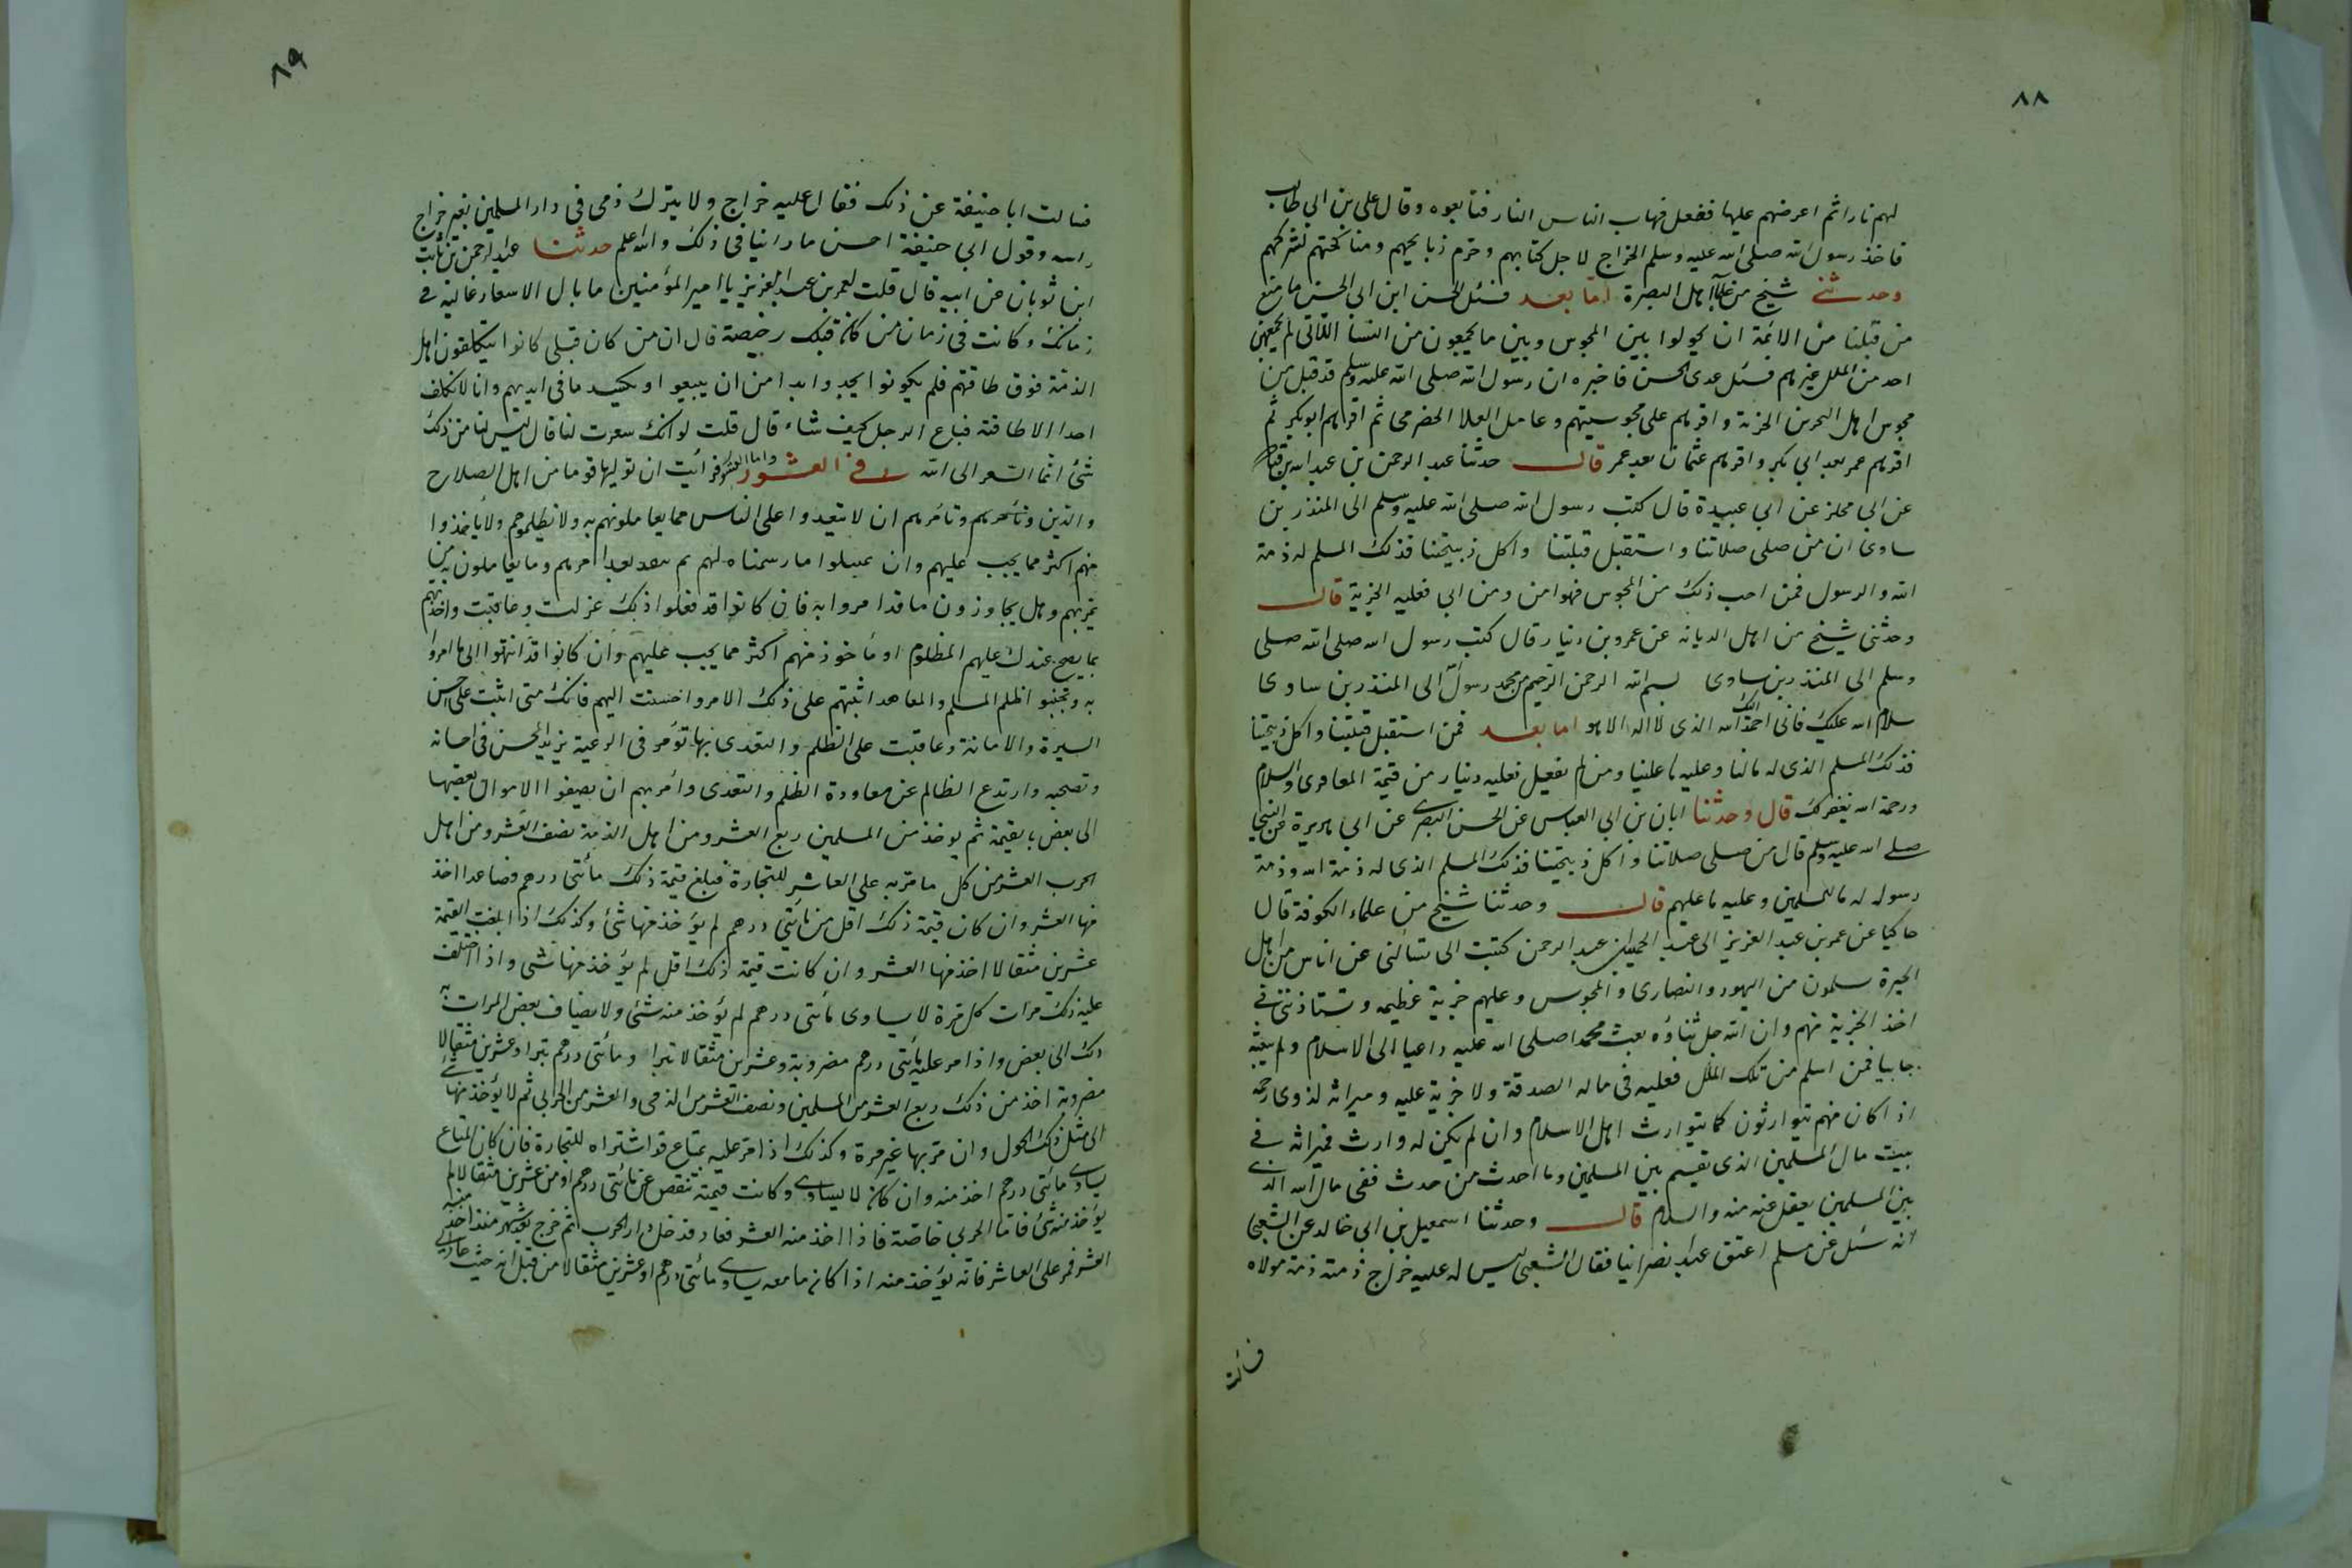 ٨٨
لهم نارا ثم اعرضهم عليها ففعل فهاب الناس النار فتابعوه وقال على بن ابي طالب
فاخذ رسول الله صلى الله عليه وسلم الخراج لاجل كتابهم وحرم ذبايحهم ومناكحتهم لشركهم
وحدثني شيخ من علماء اهل البصرة امّا بعد فسئل الحسن ابن ابي الحسن ما منع
من قبلنا من الائمة ان يحولوا بين المجوس وبين ما يجمعون من النسا اللاتي لم يجمعهن
احد من الملل غيرهم فسئل عدى الحسن فاخبره ان رسول الله صلى الله عليه وسلم قد قبل من
مجوس اهل البحرين الجزية واقرهم على مجوسيتهم وعامل العلا الحضرمى ثم اقرهم ابو بكر ثم
اقرهم عمر بعد ابي بكر واقرهم عثمان بعد عمر قال حدثنا عبد الرحمن بن عبد الله بن قتادة
عن ابي مجلز عن ابي عبيدة قال كتب رسول الله صلى الله عليه وسلم الى المنذر بن
ساوى ان من صلى صلاتنا واستقبل قبلتنا واكل ذبيحتنا فذلك المسلم له ذمة
الله والرسول فمن احب ذلك من المجوس فهو امن ومن ابى فعليه الجزية قال
وحدثني شيخ من اهل المدينة عن عمرو بن دينار قال كتب رسول الله صلى الله صلى
وسلم الى المنذر بن ساوى بسم الله الرحمن الرحيم من محمد رسول الى المنذر بن ساوى
سلام الله عليك فانى احمد اليك الله الذى لا اله الا هو اما بعد فمن استقبل قبلتنا واكل ذبيحتنا
فذلك المسلم الذى له مالنا وعليه ما علينا ومن لم يفعل فعليه دينار من قيمة المعافرى والسلام
ورحمة الله يغفر لك قال وحدثنا ابان بن ابي العباس عن الحسن البصرى عن ابي هريرة عن النبي
صلى الله عليه وسلم قال من صلى صلاتنا واكل ذبيحتنا فذلك المسلم الذى له ذمة الله وذمة
رسوله له ما للمسلمين وعليه ما عليهم قال وحدثنا شيخ من علماء الكوفة قال
حاكيا عن عمر بن عبد العزيز الى عبد الحميد بن عبد الرحمن كتبت الى تسالنى عن اناس من اهل
الحيرة يسلمون من اليهود والنصارى والمجوس وعليهم جزية عظيمه وتستاذننى فى
اخذ الجزية منهم وان الله جل ثناؤه بعث محمدا صلى الله عليه داعيا الى الاسلام ولم يبعثه
جابيا فمن اسلم من تلك الملل فعليه فى ماله الصدقة ولا جزية عليه وميراثه لذوى رحمه
اذا كان منهم يتوارثون كما يتوارث اهل الاسلام وان لم يكن له وارث فميراثه فى
بيت مال المسلمين الذى يقسم بين المسلمين وما احدث من حدث ففى مال الله الذى
بين المسلمين يعقل عنه منه والسلام قال وحدثنا اسمعيل بن ابي خالد عن الشعبى
انه سئل عن مسلم اعتق عبدا نصرانيا فقال الشعبى ليس له عليه خراج ذمته ذمة مولاه
فسالت
٨٩
فسالت ابا حنيفة عن ذلك فقال عليه خراج ولا يترك ذمى فى دار المسلمين بغير خراج
راسه وقول ابي حنيفة احسن ما راينا فى ذلك والله اعلم حدثنا عبد الرحمن بن ثابت
ابن ثوبان عن ابيه قال قلت لعمر بن عبد العزيز يا امير المؤمنين ما بال الاسعار غالية فى
زمانك وكانت فى زمان من كان قبلك رخيصة قال ان من كان قبلى كانوا يتكلفون اهل
الذمة فوق طاقتهم فلم يكونوا يجدوا بدا من ان يبيعوا او يكسد ما فى ايديهم وانا لا نكلف
احدا الا طاقته فباع الرجل كيف شاء قال قلت لو انك سعرت لنا قال ليس لنا من ذلك
شئ انما السعر الى الله فى العشور واما العشور فرأيت ان توليها قوما من اهل الصلاح
والدين وتأمرهم ان لا يتعدوا على الناس مما يعاملونهم به ولا يظلموهم ولا ياخذوا
منهم اكثر مما يجب عليهم وان يمتثلوا ما رسمناه لهم ثم بعد امرهم وما يعاملون به من
يمر بهم وهل يجاوزون ما قد امروا به فان كانوا قد فعلوا ذلك عزلت وعاقبت واخذتهم
بما يصح عندك عليهم المظلوم او مأخوذ منهم اكثر مما يجب عليهم وان كانوا قد انتهوا الى ما امروا
به وتجنبوا ظلم المسلم والمعاهد اثبتهم على ذلك الامر واحسنت اليهم فانك متى اثبت على حسن
السيرة والامانة وعاقبت على الظلم والتعدى نهاية تؤمر فى الرعية يزيد المحسن فى احسانه
ونصحه وارتدع الظالم عن معاودة الظلم والتعدى وأمرهم ان يضيفوا الاموال بعضها
الى بعض بالقيمة ثم يوخذ من المسلمين ربع العشر ومن اهل الذمة نصف العشر ومن اهل
الحرب العشر من كل ما مر به على العاشر للتجارة فبلغ قيمة ذلك مأتى درهم فصاعدا اخذ
منها العشر وان كان قيمة ذلك اقل من مأتى درهم لم يؤخذ منها شئ وكذلك اذا بلغت القيمة
عشرين مثقالا اخذ منها العشر وان كانت قيمة ذلك اقل لم يؤخذ منها شئ واذا اختلف
عليه ذلك مرات كل مرة لا يساوى مأتى درهم لم يؤخذ منه شئ ولا يضاف بعض المرات به
ذلك الى بعض واذا مر عليه بمأتى درهم مضروبة وعشرين مثقالا تبرا ومأتى درهم تبرا وعشرين مثقالا
مضروبة اخذ من ذلك ربع العشر من المسلمين ونصف العشر من الذمى والعشر من الحربى ثم لا يؤخذ منها شئ
الى مثل ذلك الحول وان مر بها غير مرة وكذلك اذا مر عليه بمتاع قد اشتراه للتجارة فان كان المتاع
يساوى مأتى درهم اخذ منه وان كان لا يساوى وكانت قيمته تنقص عن مأتى درهم او من عشرين مثقالا لم
يؤخذ منه شئ فاما الحربى خاصة فاذا اخذ منه العشر فعاد فدخل دار الحرب ثم خرج بعد شهر منذ اخذ منه
العشر فمر على العاشر فانه يؤخذ منه اذا كان ما معه يساوى مأتى درهم او عشرين مثقالا من قبل انه حيث عاد الى